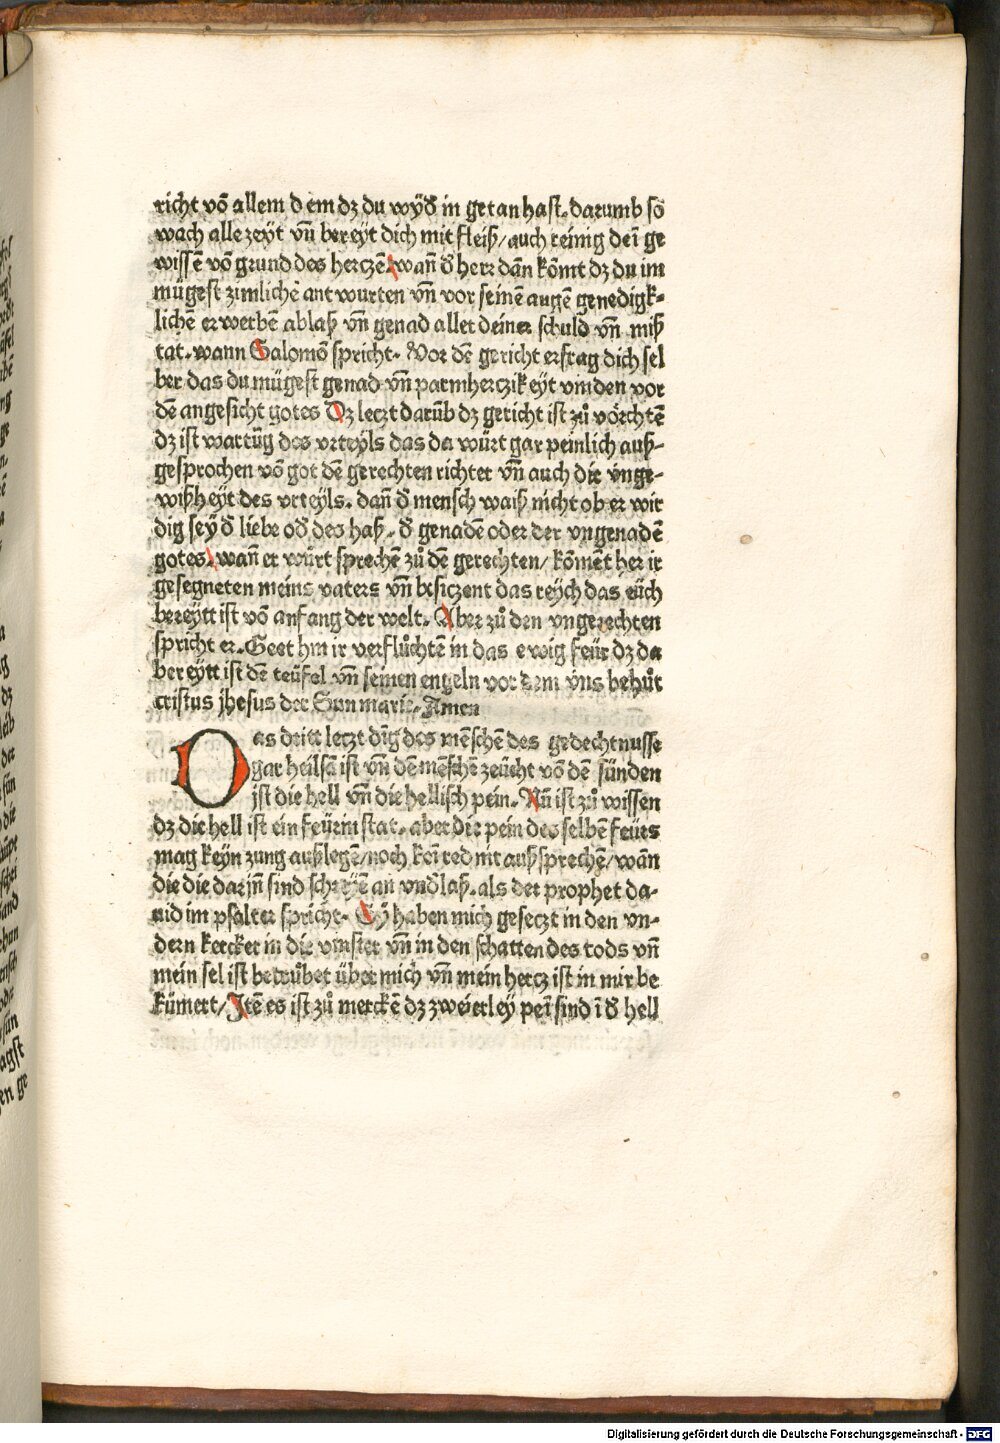 richt võ allem d em dz du wÿď in getan hast. darumb so
wach alle zeyt vñ bereyt dich mit fleiß/auch reinig dei ge
wissē võ grund des herczē. wañ ď herr dãn kõmt dz du im
mügest zimlichē antwurten vñ vor seinē augē genedigk⸗
lichē erwerbē ablaß vñ genad aller deiner schuld vñ miß
tat. wann Salomõ spricht. Vor dē gericht erfrag dich sel
ber das du mügest genad vñ parmherczikeyt vinden vor
dē angesicht gotes Dz leczt darũb dz gericht ist zů võrchtē
dz ist wartũg des vrteyls das da würt gar peinlich auß⸗
gesprochen võ got dē gerechten richter vñ auch die vnge⸗
wißheyt des vrteyls. dañ ď mensch waiß nicht ob er wir
dig seÿ ď liebe oď des haß. ď genadē oder der vngenadē
gotes. wañ er würt sprechē zů dē gerechten/ kõmēt her ir
gesegneten meins vaters vñ besiczent das reych das eüch
bereytt ist võ anfang der welt. Aber zů den vngerechten
spricht er. Geet hin ir verflůchtē in das ewig feür dz da
bereytt ist dē teüfel vñ seinen engeln vor dem vns behůt
cristus jhesus der Sun marie. Amen
Das dritt leczt dĩg des mēschē des gedechtnusse
gar heilsã ist vñ dē mēschē zeücht võ dē sünden
ist die hell vñ die hellisch pein. Nũ ist zů wissen
dz die hell ist ein feürin stat. aber die pein des selbē feües
mag keyn zung außlegē/noch kei red nit außsprechē/wãn
die die darjñ sind schreyē an vnďlaß. als der prophet da⸗
uid im psalter spricht. Sÿ haben mich geseczt in den vn⸗
dern kercker in die vinster vñ in den schatten des tods vñ
mein sel ist betrůbet über mich vñ mein hercz ist in mir be
kümert/ Itē es ist zů merckē dz zweierley pei sind ĩ ď hell
Digitalisierung gefördert durch die Deutsche Forschungsgemeinschaft - DFG